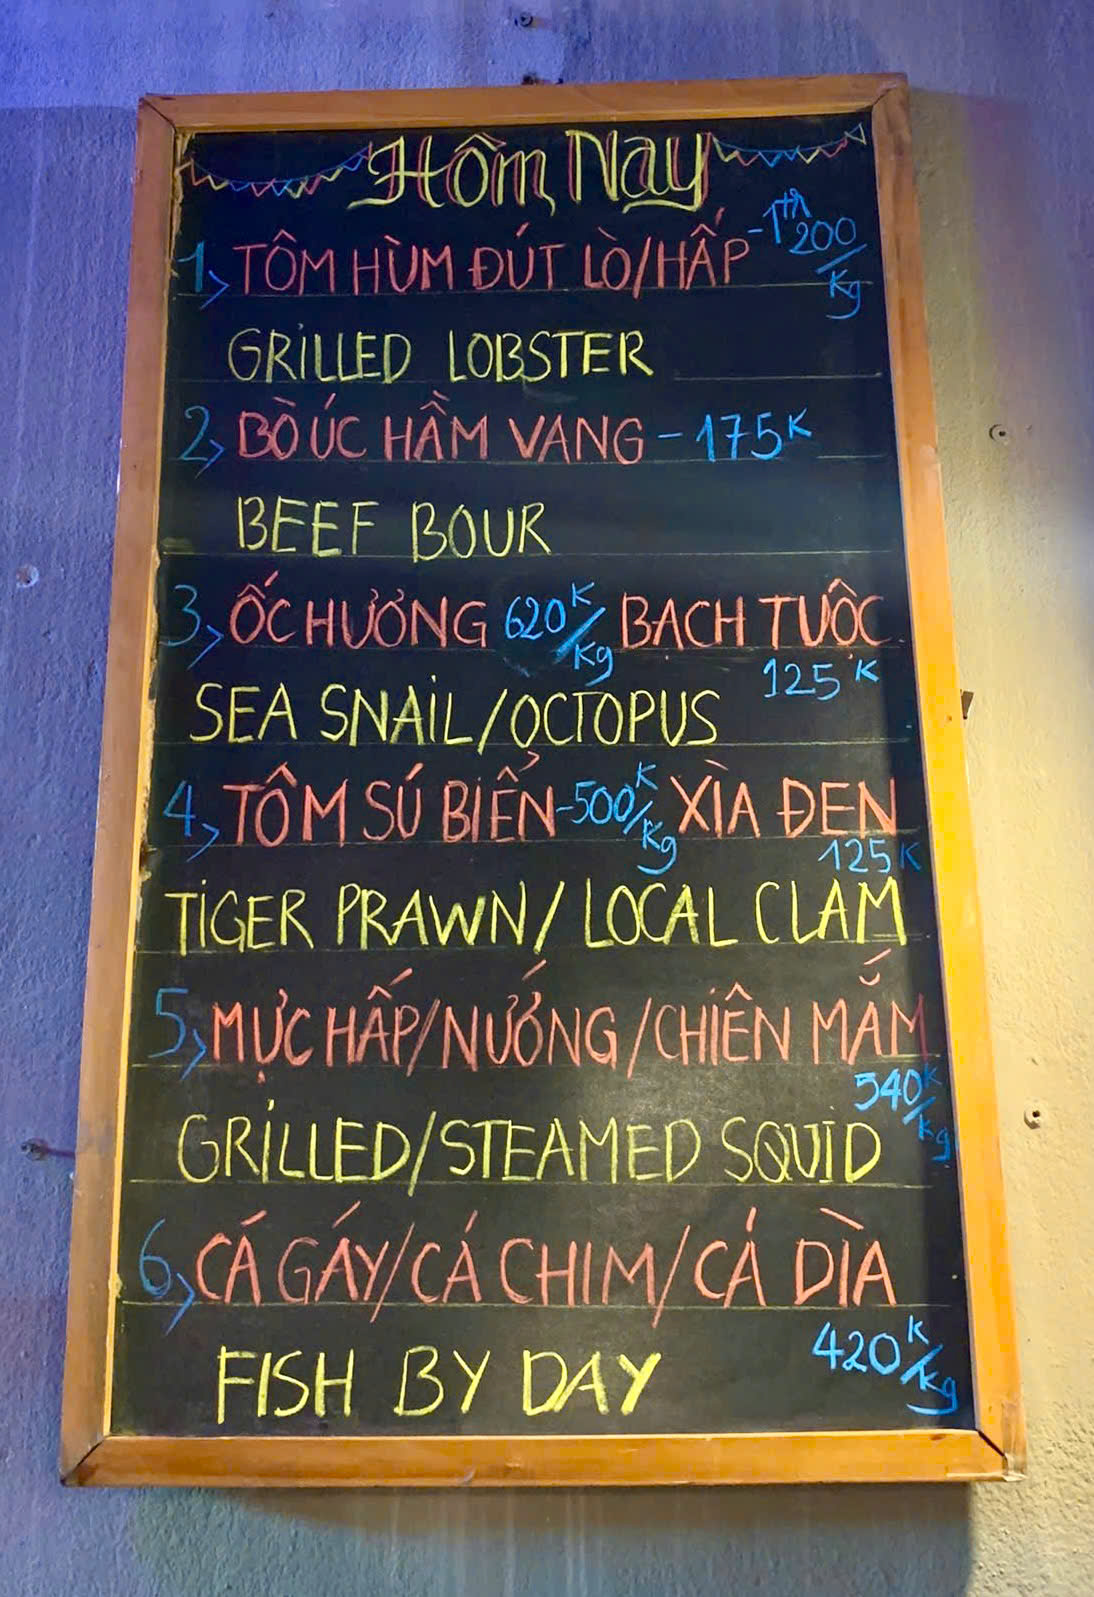 Hôm Nay
1, TÔM HÙM ĐÚT LÒ/HẤP - 1tr200/Kg
GRILLED LOBSTER
2, BÒ ÚC HẦM VANG - 175K
BEEF BOUR
3, ỐC HƯƠNG 620K/Kg BẠCH TUỘC 125K
SEA SNAIL/OCTOPUS
4, TÔM SÚ BIỂN - 500K/Kg XÌA ĐEN 125K
TIGER PRAWN/LOCAL CLAM
5, MỰC HẤP/NƯỚNG/CHIÊN MẮM 540K/Kg
GRILLED/STEAMED SQUID
6, CÁ GÁY/CÁ CHIM/CÁ DÌA
420K/Kg
FISH BY DAY